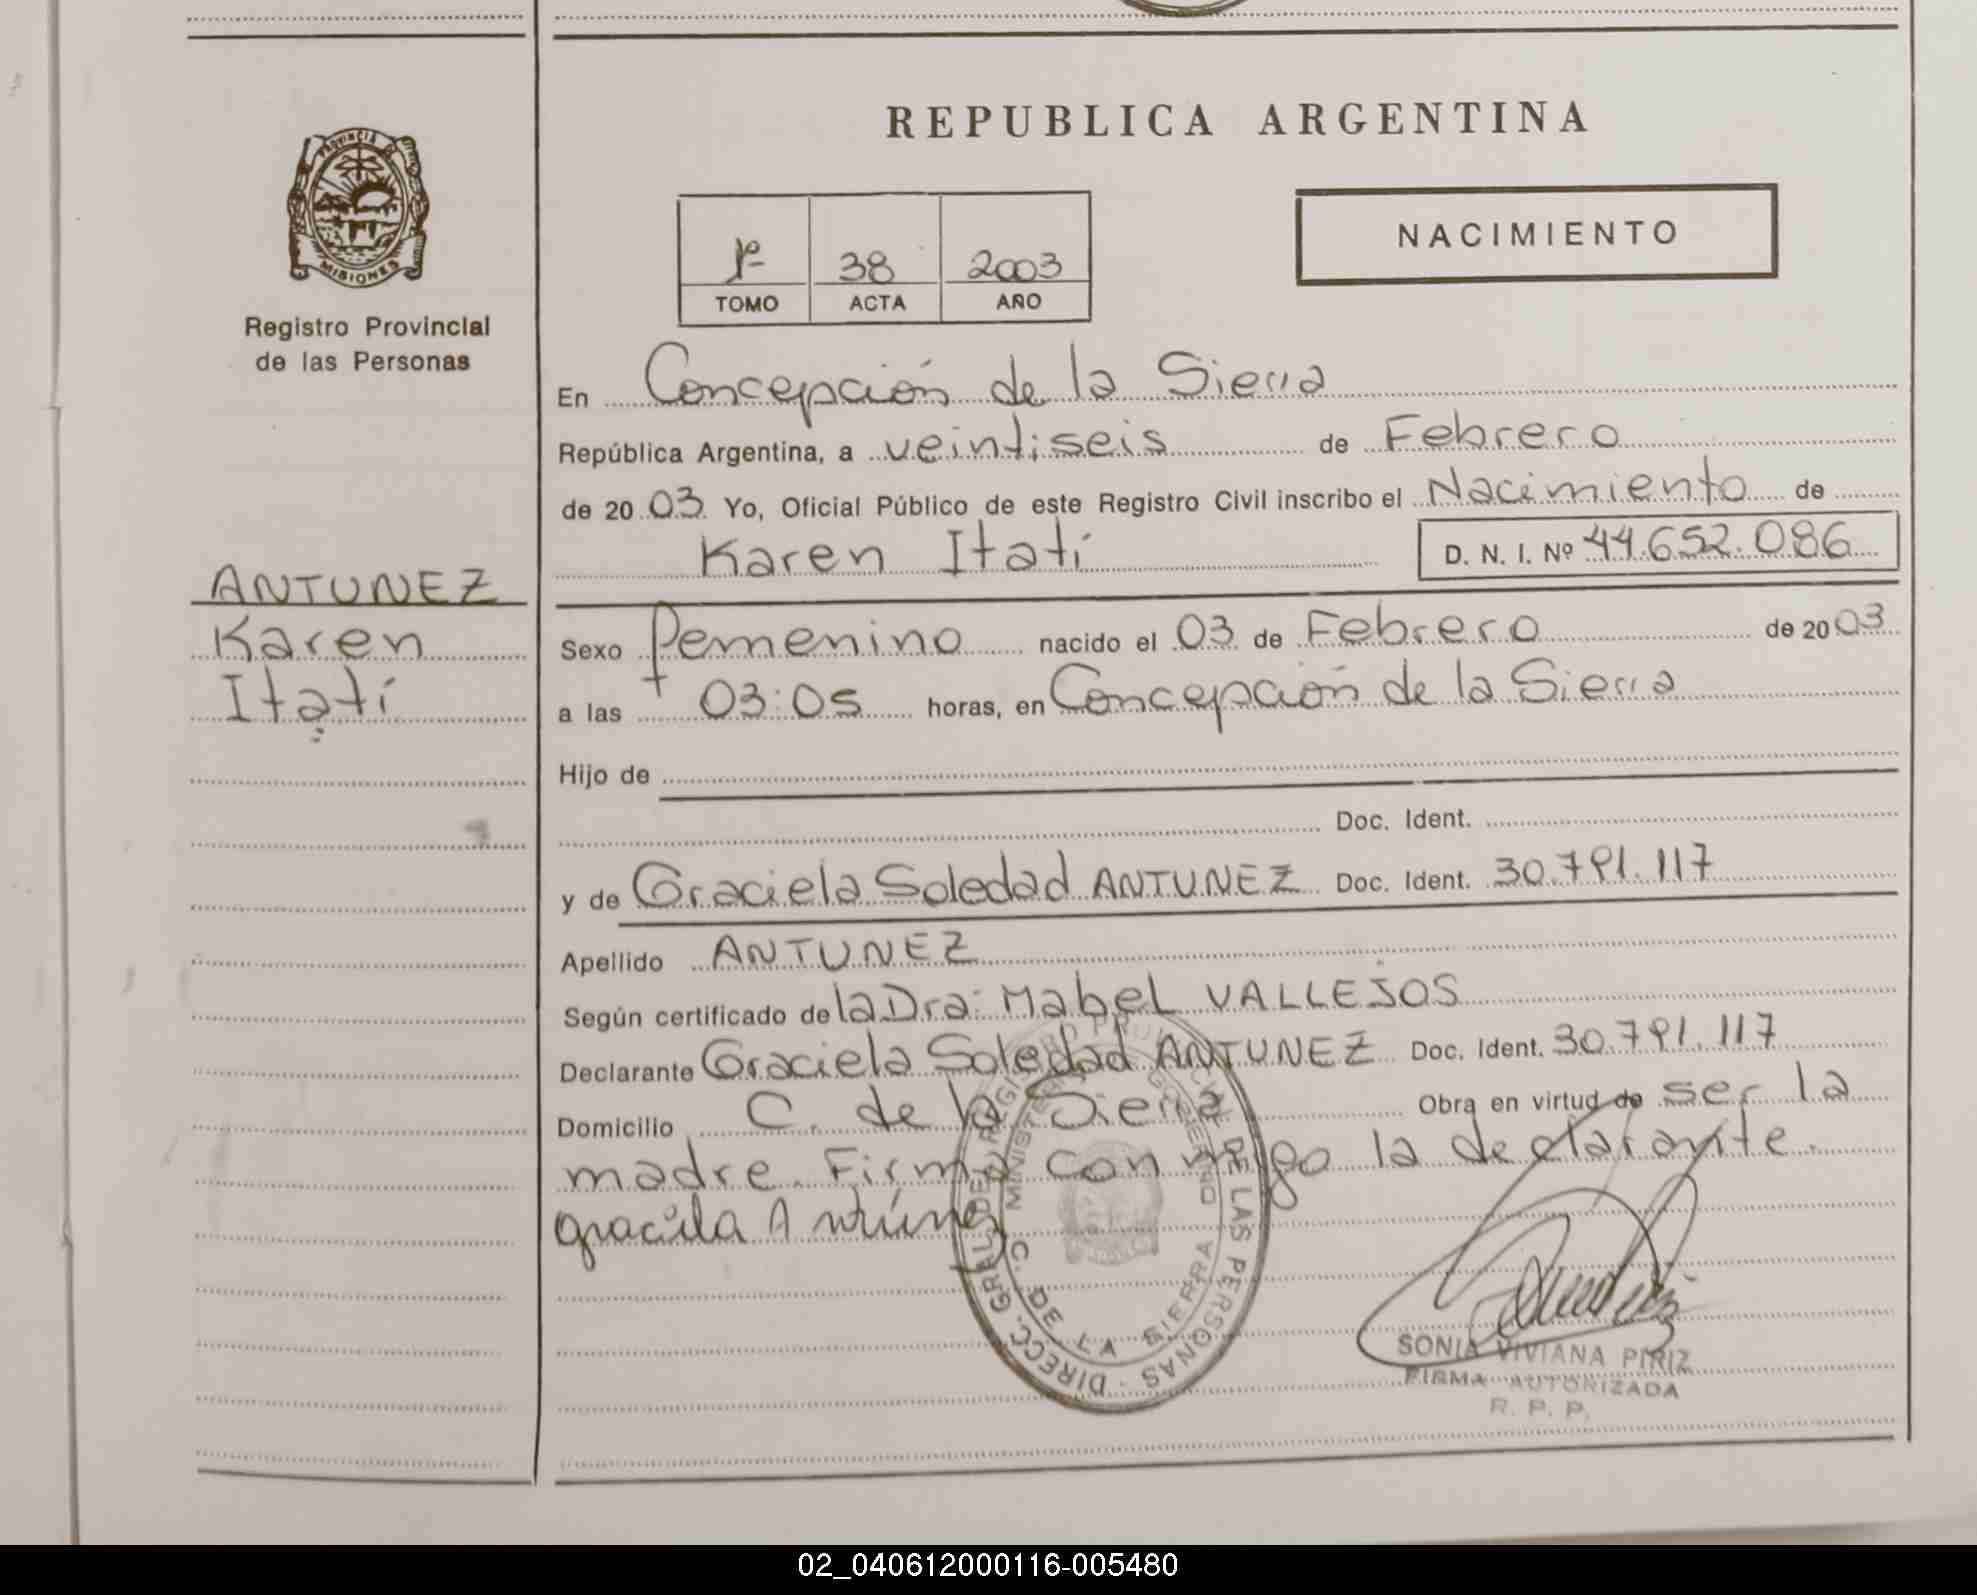 REPUBLICA ARGENTINA
PROVINCIA DE
MISIONES
Registro Provincial
de las Personas
NACIMIENTO
1º 38 2003
TOMO ACTA AÑO
En Concepción de la Sierra
República Argentina, a veintiseis de Febrero
de 2003 Yo, Oficial Público de este Registro Civil inscribo el Nacimiento de
Karen Itatí D. N. I. Nº 44.652.086
ANTUNEZ
Karen
Itatí
Sexo Femenino nacido el 03 de Febrero de 2003
a las 03:05 horas, en Concepción de la Sierra
Hijo de
Doc. Ident.
y de Graciela Soledad ANTUNEZ Doc. Ident. 30.791.117
Apellido ANTUNEZ
Según certificado de la Dra: Mabel VALLEJOS
Declarante Graciela Soledad ANTUNEZ Doc. Ident. 30.791.117
Domicilio C. de la Sierra Obra en virtud de ser la
madre. Firma con migo la declarante.
graciela Antúnez
DIRECC. GRAL. DEL REGISTRO PROVINCIAL DE LAS PERSONAS
MINISTERIO GOBIERNO
C. DE LA SIERRA
SONIA VIVIANA PIRIZ
FIRMA AUTORIZADA
R. P. P.
02_040612000116-005480